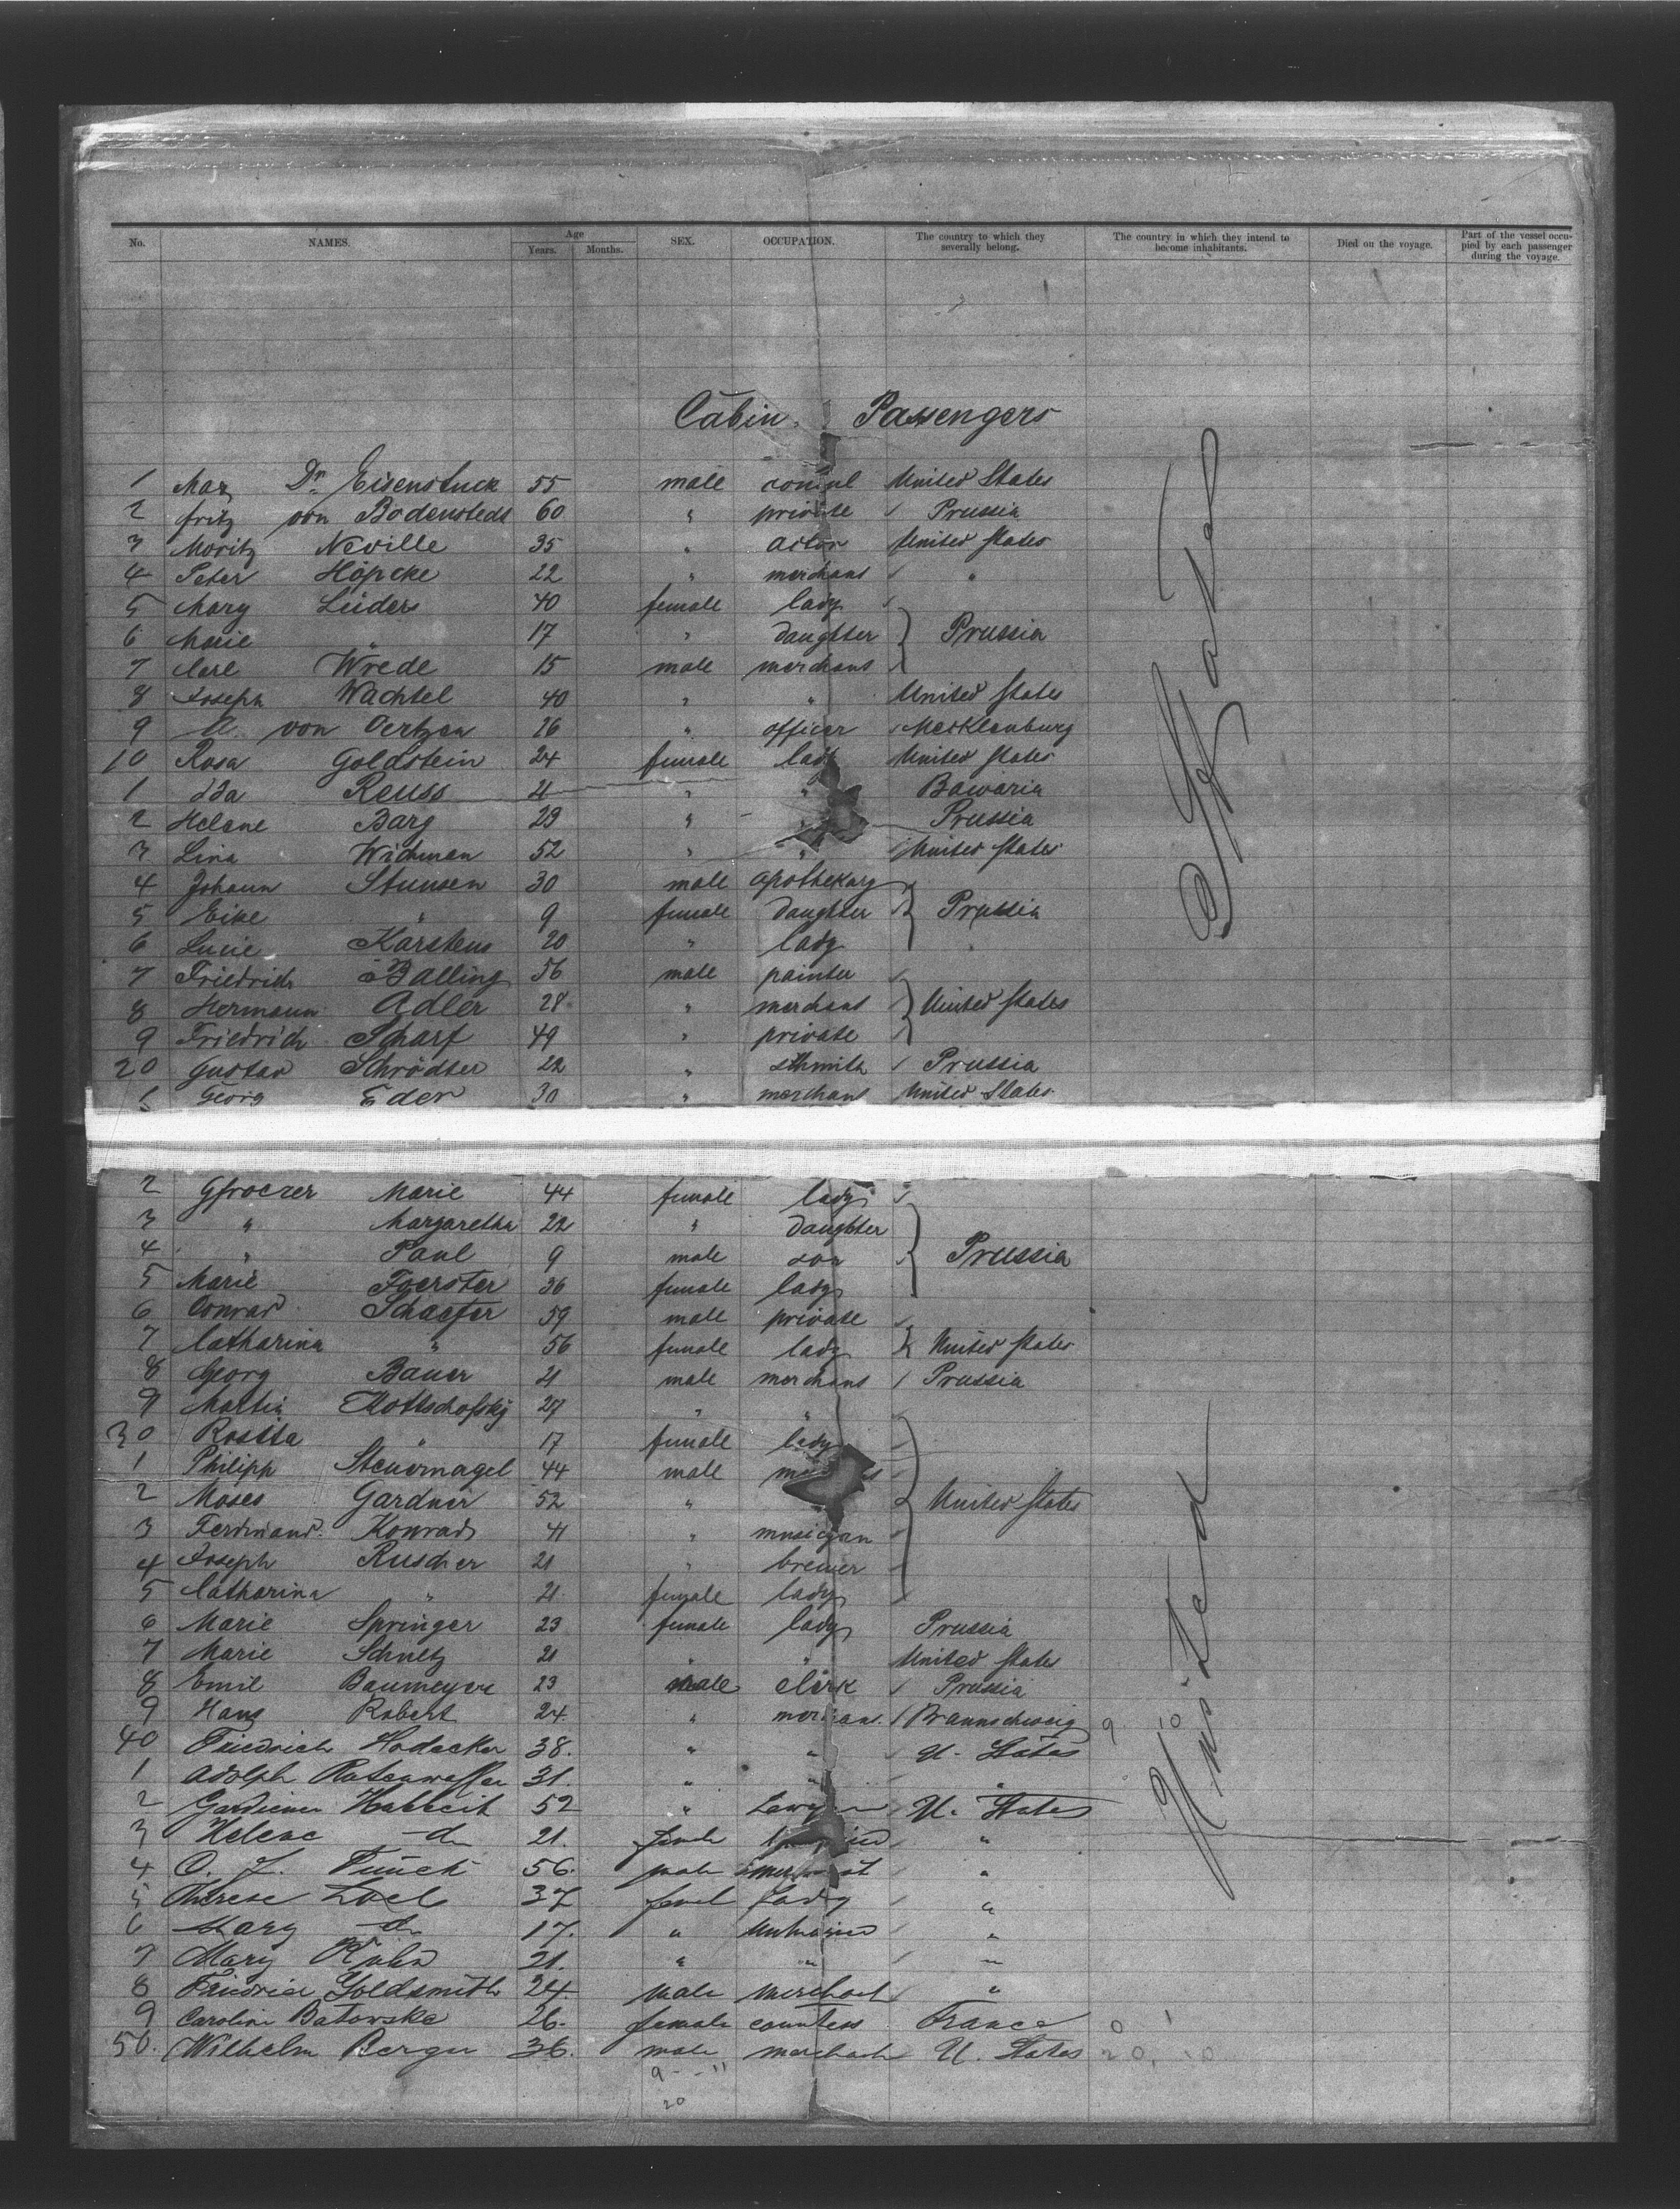 No. NAMES. Age Years. Months. SEX. OCCUPATION. The country to which they severally belong. The country in which they intend to become inhabitants. Died on the voyage. Part of the vessel occupied by each passenger during the voyage.
Cabin Passengers
1 Max Dr. Eisenstuck 55 male consul United States
2 Fritz von Bodenstedt 60 " private Prussia
3 Moritz Neville 35 " actor United States
4 Peter Höpcke 22 " merchant "
5 Mary Lüders 40 female lady
6 Marie " 17 " daughter Prussia
7 Carl Wrede 15 male merchant
8 Joseph Wachtel 40 " " United States
9 A. von Oertzen 26 " officer Mecklenburg
10 Rosa Goldstein 24 female lady United States
1 Ida Reuss 21 " " Bawaria
2 Helene Barg 23 " " Prussia
3 Lina Widman 52 " " United States
4 Johann Stunsen 30 male apothekary
5 Eike " 9 female daughter Prussia
6 Lucie Karstens 20 " lady
7 Friedrich Balling 56 male painter
8 Hermann Adler 28 " merchant United States
9 Friedrich Scharf 49 " private
20 Gustav Schrödter 22 " Prussia
1 Georg Eder 30 " merchant United States
2 Gfroerer Marie 44 female lady
3 " Margaretha 22 " daughter
4 " Paul 9 male son Prussia
5 Marie Foerster 36 female lady
6 Conrad Schaefer 59 male private
7 Catharina " 56 female lady United States
8 Georg Bauer 21 male merchant Prussia
9 Martin Kottschofsky 27 " "
30 Rosita " 17 female lady
1 Philipp Steuernagel 44 male
2 Moses Gardner 52 " United States
3 Ferdinand Konrad 41 " musician
4 Joseph Ruscher 21 " brewer
5 Catharina " 21 female lady
6 Marie Springer 23 female lady Prussia
7 Marie Schultz 21 " " United States
8 Emil Baumeyer 23 male clerk Prussia
9 Hans Robert 24 " merchant Braunschweig 9 10
40 Friedrich Hodecker 38. " " U. States
1 Adolph 31. " " "
2 Gardiner 52 " Lawyer U. States
3 Helene do 21. female "
4 O. J. 56. male merchant "
5 Therese 37 female Lady "
6 Mary do 17. " unmarried "
7 Mary 21. " " "
8 Friedrich Goldsmith 24 male merchant "
9 Caroline Batowska 26. female countess France 0 1
50. Wilhelm Berger 36. male merchant U. States 20. 10
9 - 11
20
United States